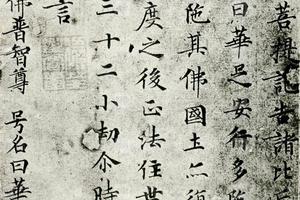 菩提記告諸比丘
曰華足安行多陀
陁其佛國土亦復
度之後正法住世
三十二小劫尒時
言
佛普智尊 号名曰華